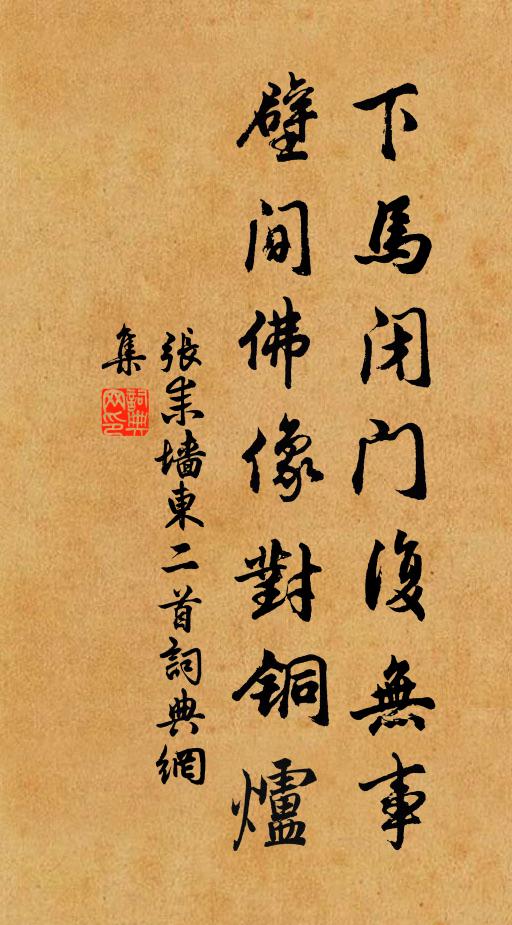 下馬闭門復無事
壁间佛像對铜爐
張耒墻東二首詞典網
集
詞典
网印